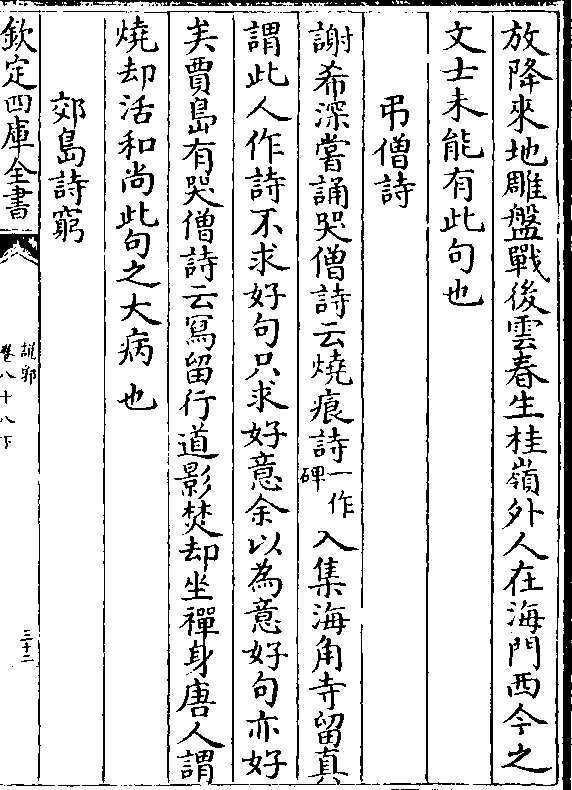 放降來地雕盤戰後雲春生桂嶺外人在海門西今之
文士未能有此句也
弔僧詩
謝希深嘗誦哭僧詩云燒痕詩一作碑入集海角寺留真
謂此人作詩不求好句只求好意余以為意好句亦好
矣賈島有哭僧詩云寫留行道影焚却坐禪身唐人謂
燒却活和尚此句之大病也
郊島詩窮
欽定四庫全書
說郛
卷八十八下
三十二